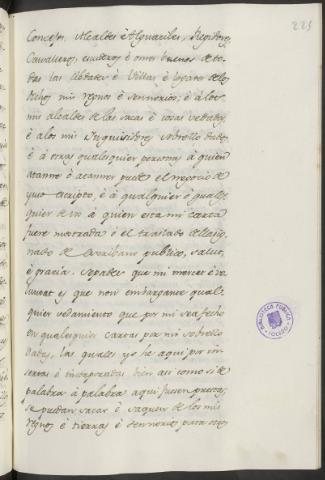 225
Concejos, Alcaldes é Alguaciles, Regidores,
Cavalleros, escuderos é omes buenos de to-
das las Cibdades é Villas é logares de los
dichos mis regnos é sennorios, é á los
mis alcaldes de las sacas é cosas vedadas,
é á los mis Inquisidores sobre ello dados,
é á otras qualesquier personas á quien
atanne ó atanner puede el negocio de
yuso escripto, é á qualquier ó quales
quier de vos á quien esta mi carta
fuere mostrada ó el traslado de ella sig-
nado de Escribano publico, salut,
é gracia. Sepades que mi merced é vo-
luntat es que non embargante qual-
quier vedamiento que por mi sea fecho
en qualesquier cartas por mi sobre ello
dadas, las quales yo he aqui por in-
sertas é incorporadas bien asi como si de
palabra á palabra aqui fuesen puestas,
se puedan sacar é saquen de los mis
regnos é tierras é sennorios para otros
BIBLIOTECA PUBLICA
TOLEDO